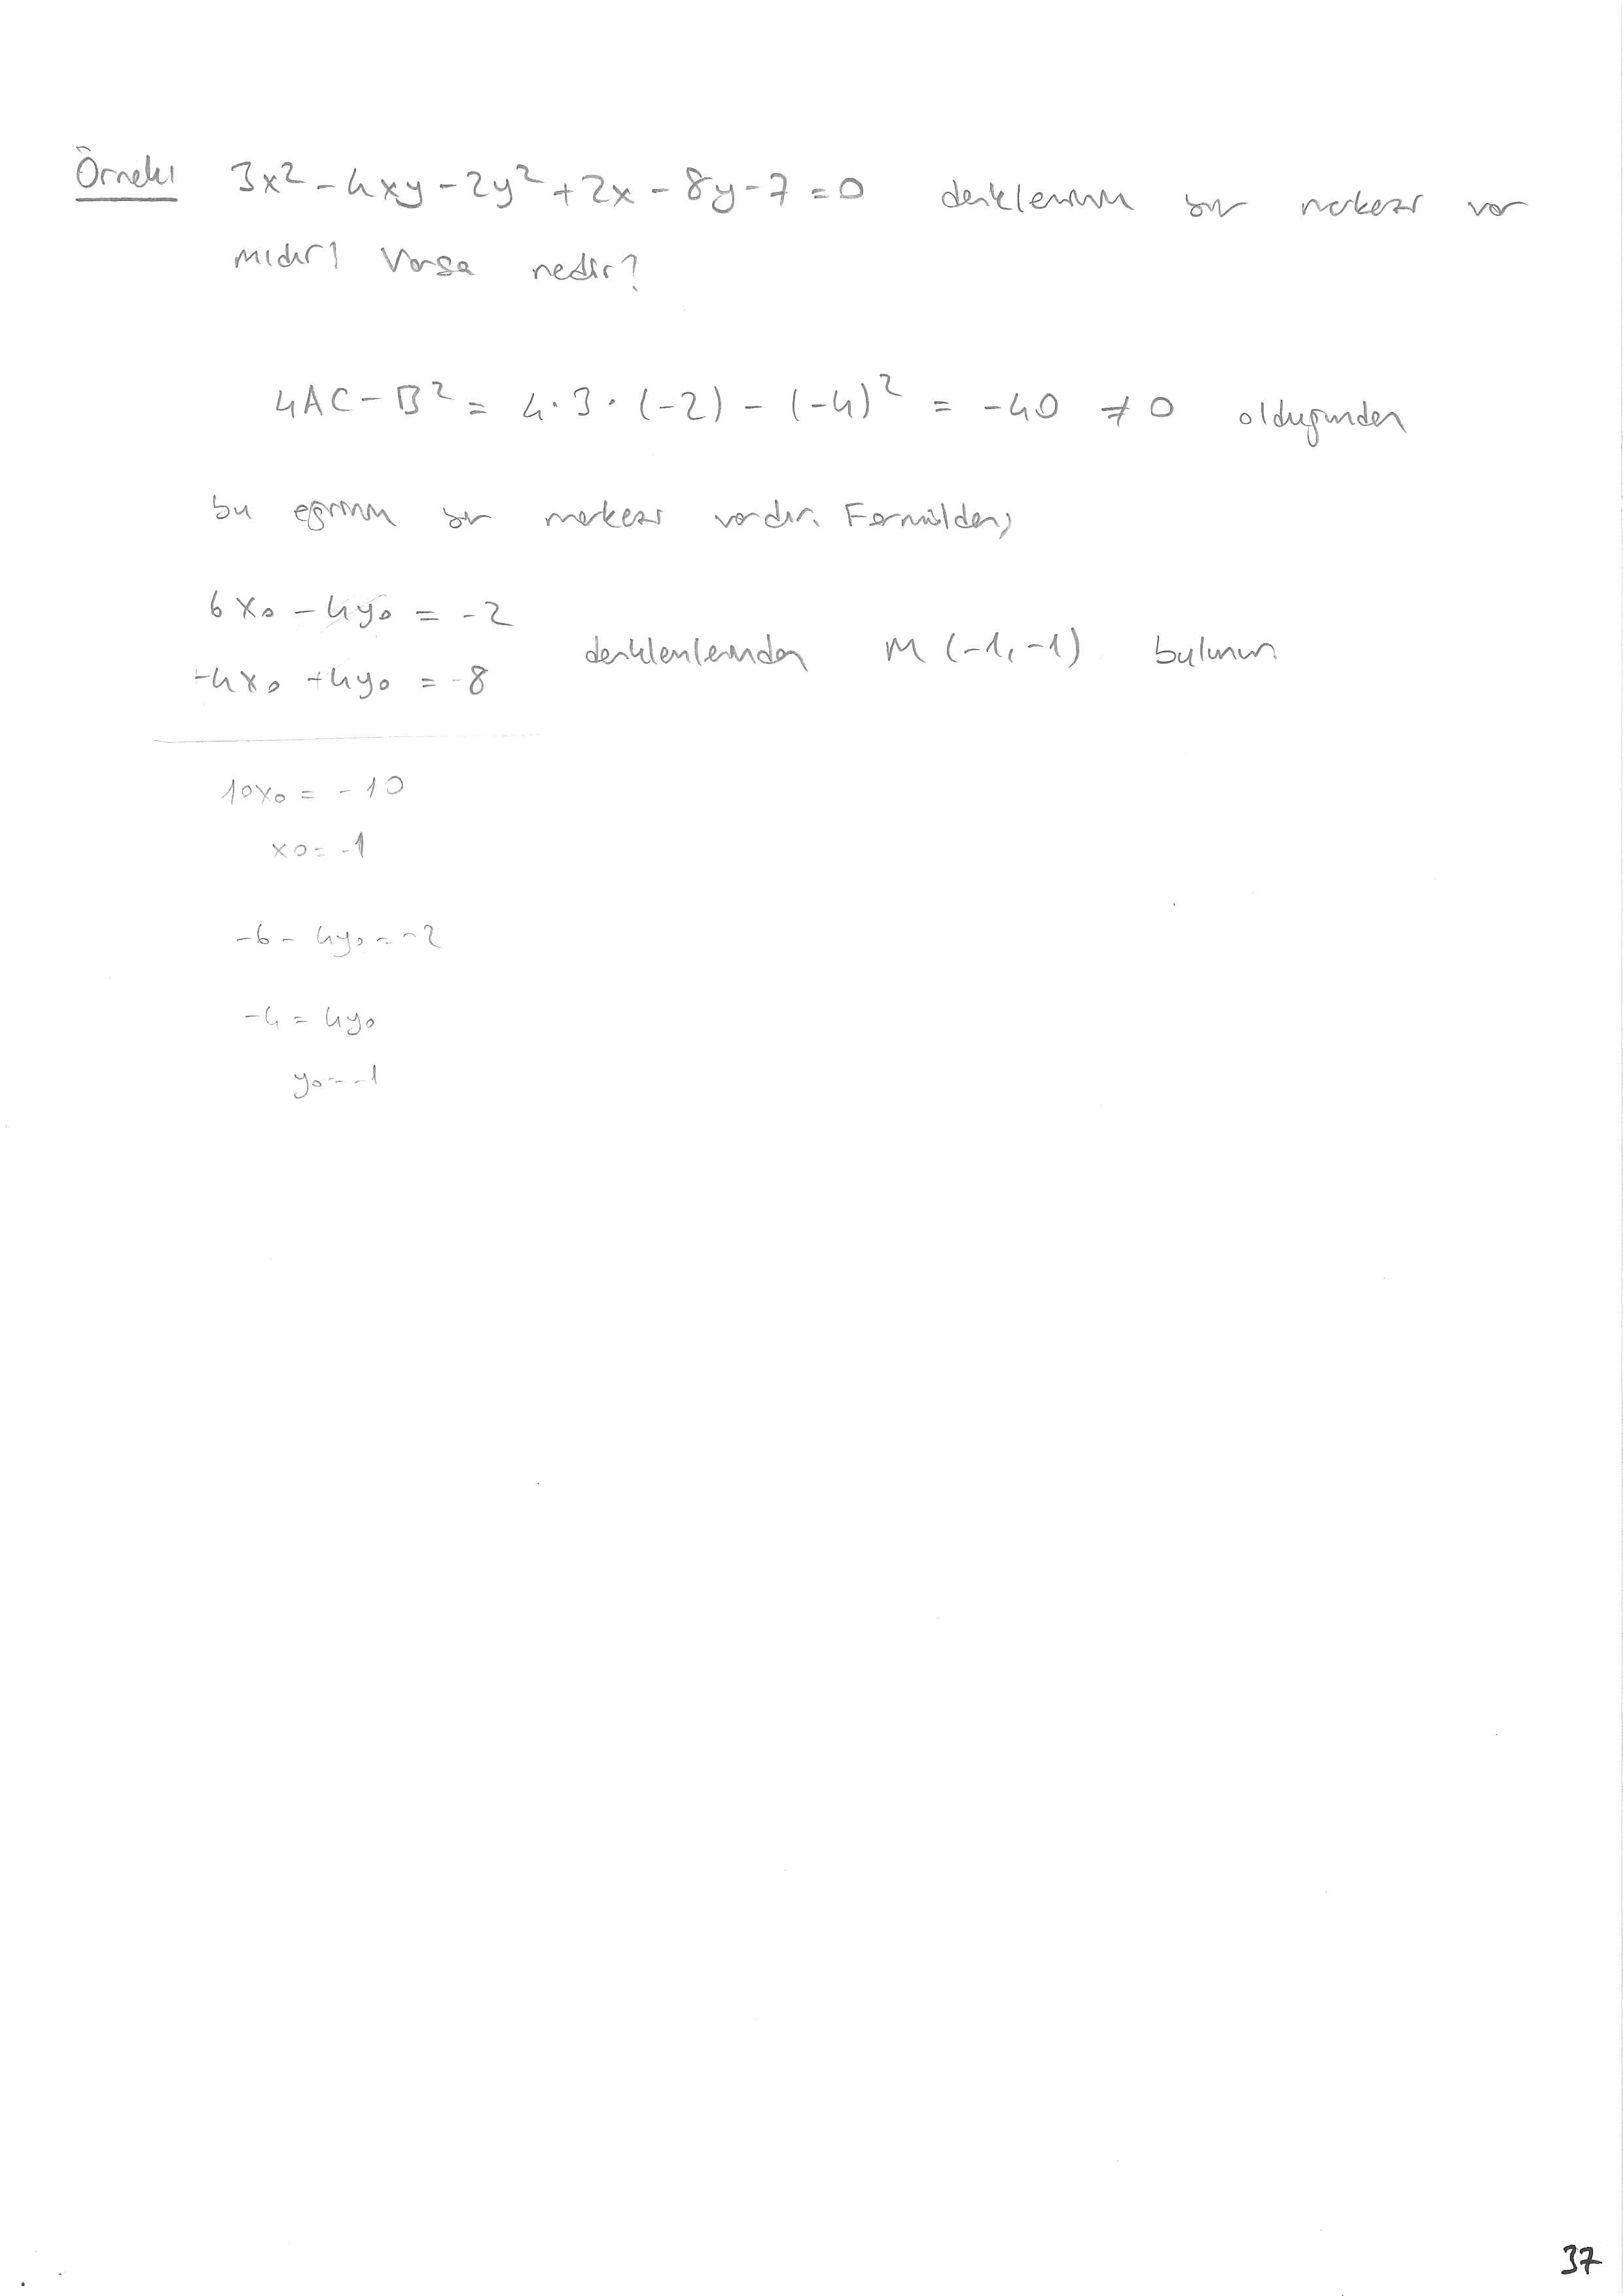 Örnek: 3x² - 4xy - 2y² + 2x - 8y - 7 = 0 denkleminin bir merkezi var
mıdır? Varsa nedir?
4AC - B² = 4·3·(-2) - (-4)² = -40 ≠ 0 olduğundan
bu eğrinin bir merkezi vardır. Formülden,
6x₀ - 4y₀ = -2
-4x₀ + 4y₀ = -8 denklemlerinden M(-1, -1) bulunur.
10x₀ = -10
x₀ = -1
-6 - 4y₀ = -2
-4 = 4y₀
y₀ = -1
37